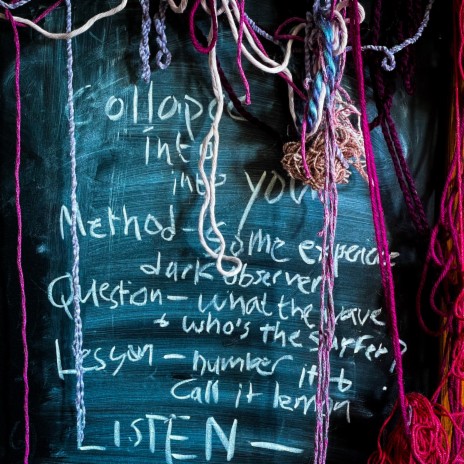 Collapse
into
into your
Method - Some experience
dark observer
Question - what the wave
+ who's the surfer?
Lesson - number it 6
Call it lemon
LISTEN -